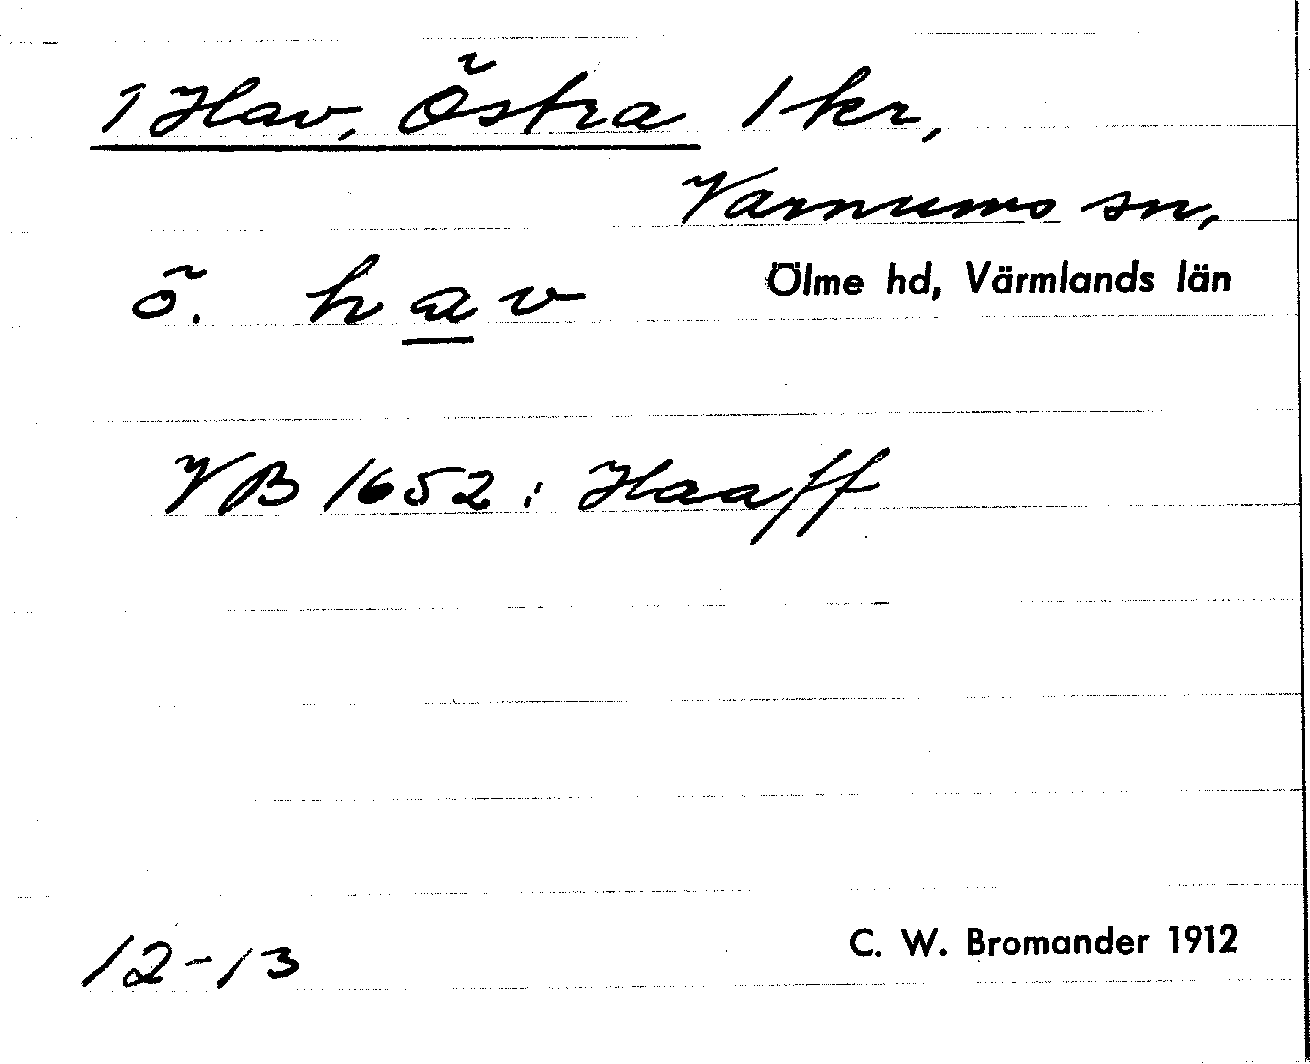 1 Hav, Östra 1 kr,
Varnums sn,
ö. hav Ölme hd, Värmlands län
VB 1652: Haaff
12-13 C. W. Bromander 1912